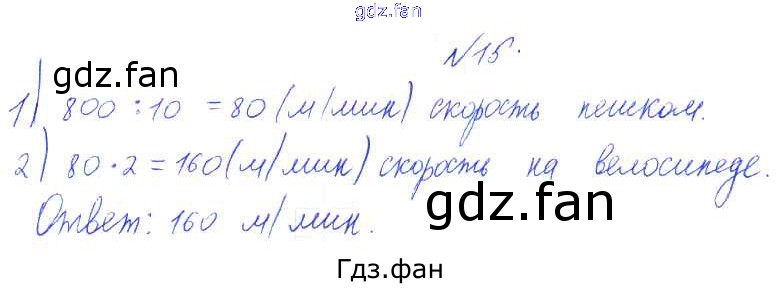 gdz.fan
N15.
gdz.fan
1) 800 : 10 = 80 (м/мин) скорость пешком.
2) 80 · 2 = 160 (м/мин) скорость на велосипеде.
Ответ: 160 м/мин.
gdz.fan
Гдз.фан